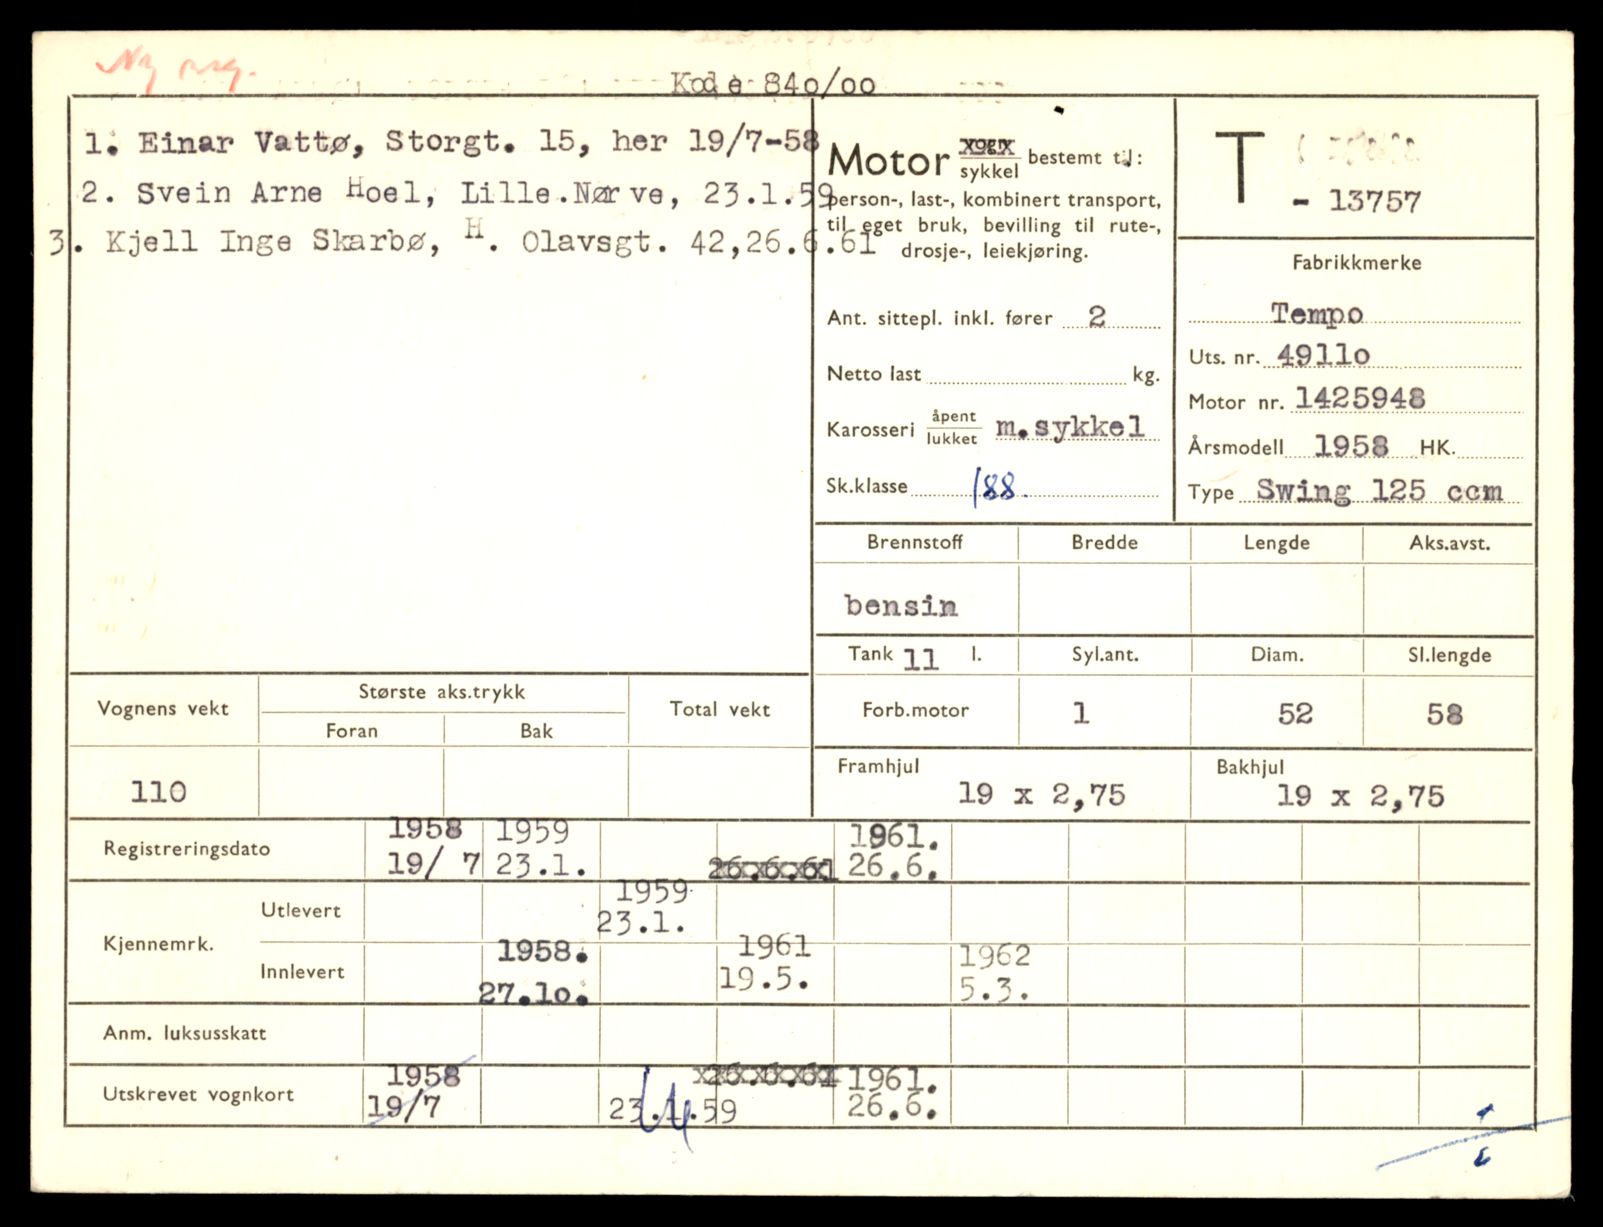 Ny reg.
Kode 840/00
1. Einar Vattø, Storgt. 15, her 19/7-58
2. Svein Arne Hoel, Lille.Nørve, 23.1.59
3. Kjell Inge Skarbø, H. Olavsgt. 42,26.6.61
Motor vogn
sykkel bestemt til:
person-, last-, kombinert transport,
til eget bruk, bevilling til rute-,
drosje-, leiekjøring.
T - 13757
Fabrikkmerke
Tempo
Ant. sittepl. inkl. fører 2
Uts. nr. 49110
Netto last kg.
Motor nr. 1425948
Karosseri åpent
lukket m.sykkel
Årsmodell 1958 HK.
Sk.klasse 188.
Type Swing 125 ccm
Brennstoff Bredde Lengde Aks.avst.
bensin
Tank 11 l. Syl.ant. Diam. Sl.lengde
Forb.motor 1 52 58
Vognens vekt Største aks.trykk Total vekt
Foran Bak
110
Framhjul Bakhjul
19 x 2,75 19 x 2,75
1958 1959 1961.
Registreringsdato 19/ 7 23.1. 26.6.61 26.6.
1959
Utlevert 23.1.
Kjennemrk.
1958. 1961 1962
Innlevert 27.10. 19.5. 5.3.
Anm. luksusskatt
1958 26.6.61 1961.
Utskrevet vognkort 19/7 23.1.59 26.6.